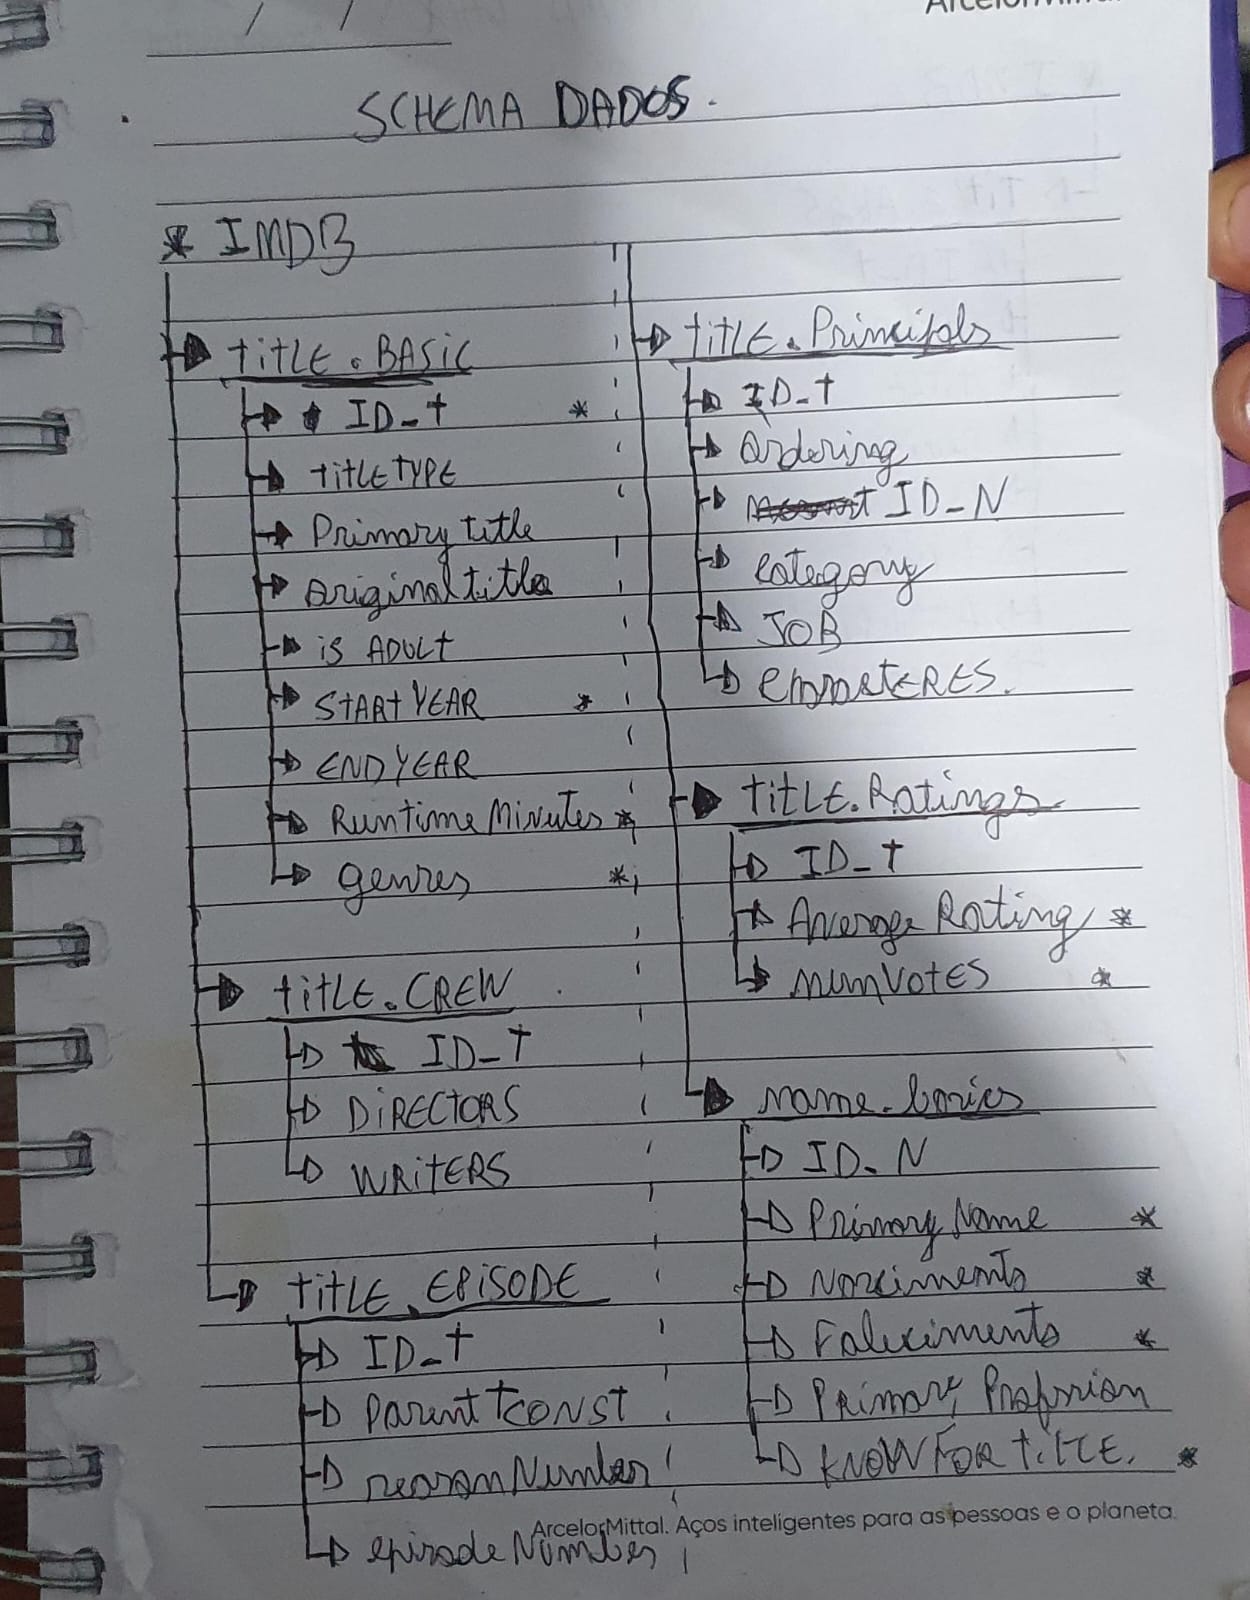 SCHEMA DADOS.
* IMDB
TITLE.BASIC
ID_t *
TITLETYPE
Primary title
Original title
is ADULT
START YEAR *
END YEAR
Runtime Minutes *
genres *
TITLE.CREW
ID_T
DIRECTORS
WRITERS
TITLE.EPISODE
ID_t
Parent TCONST
seasonNumber
episodeNumber
TITLE.Principals
ID_t
Ordering
ID_N
Category
JOB
TITLE.Ratings
ID_T
Average Rating *
numVotes *
name.basics
ID_N
Primary Name *
Nascimento *
Falecimento *
Primary Profession
KNOW FOR TITLE. *
ArcelorMittal. Aços inteligentes para as pessoas e o planeta.